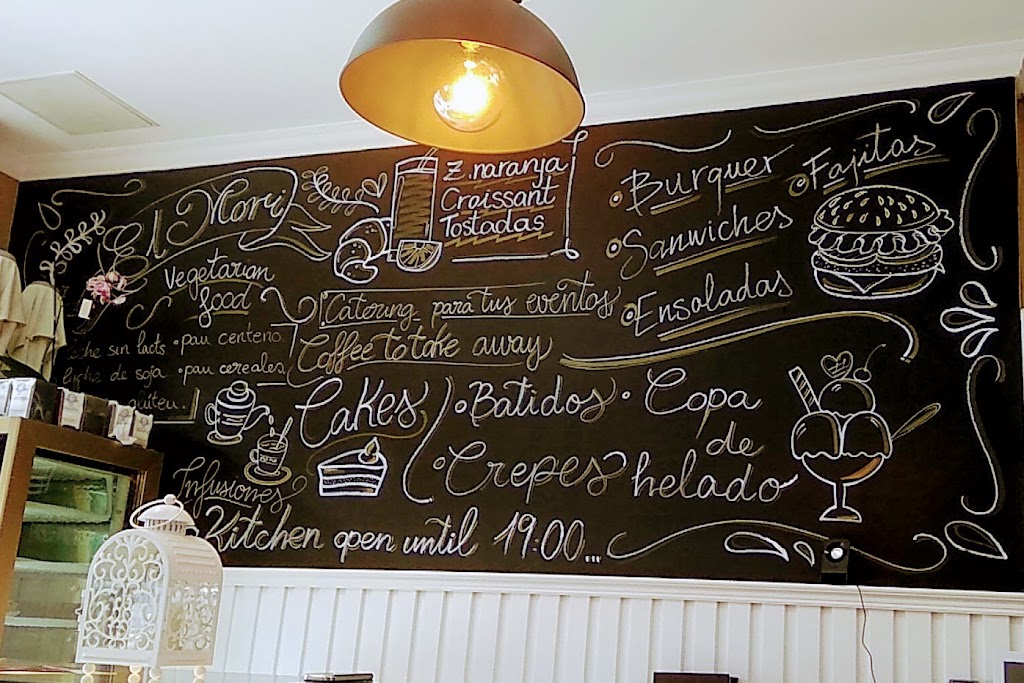 El Mori
Vegetarian
food
leche sin lact. • pan centeno.
leche de soja • pan cereales
Z. naranja
Croissant
Tostadas
Catering para tus eventos
Coffee to take away
• Burquer
• Fajitas
• Sanwiches
• Ensaladas
Cakes
• Batidos
• Crepes
• Copa
de
helado
Infusiones
Kitchen open until 19:00...